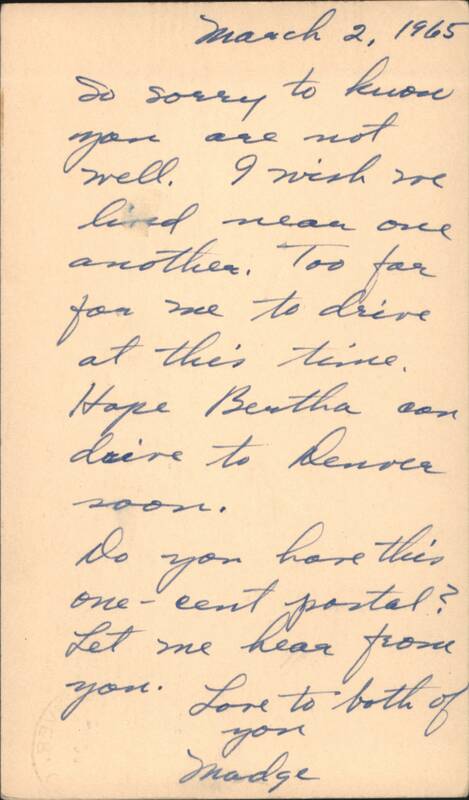 March 2, 1965
So sorry to know
you are not
well. I wish we
lived near one
another. Too far
for me to drive
at this time.
Hope Bertha can
drive to Denver
soon.
Do you have this
one-cent postal?
Let me hear from
you.
Love to both of
you
Madge